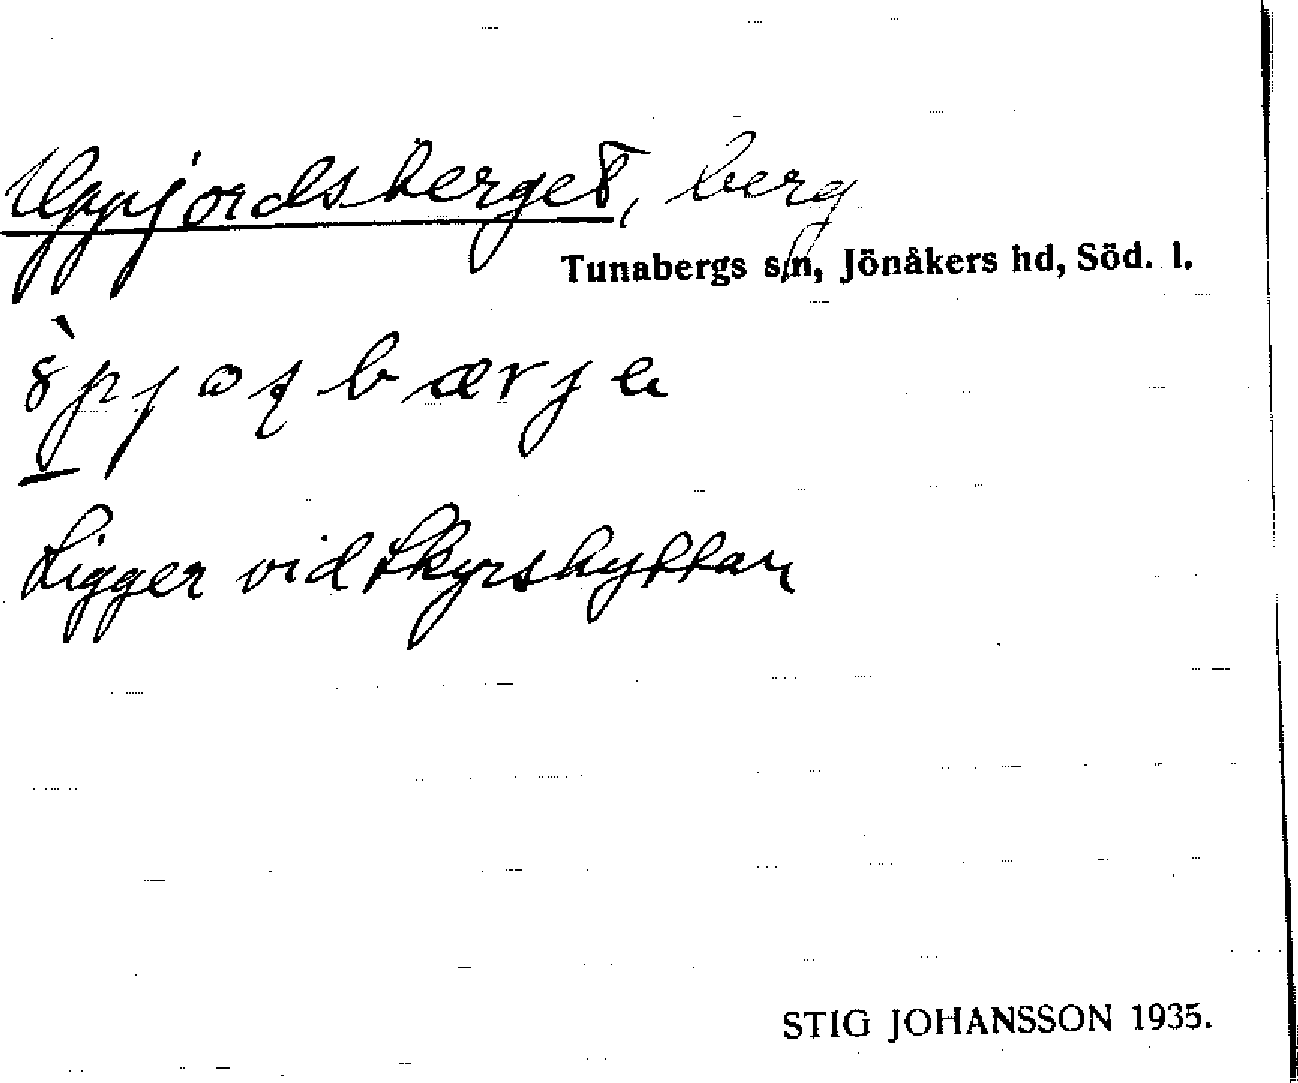 Uppjordsberget, berg
Tunabergs s:n, Jönåkers hd, Söd. l.
Ligger vid Skyrshyttan
STIG JOHANSSON 1935.